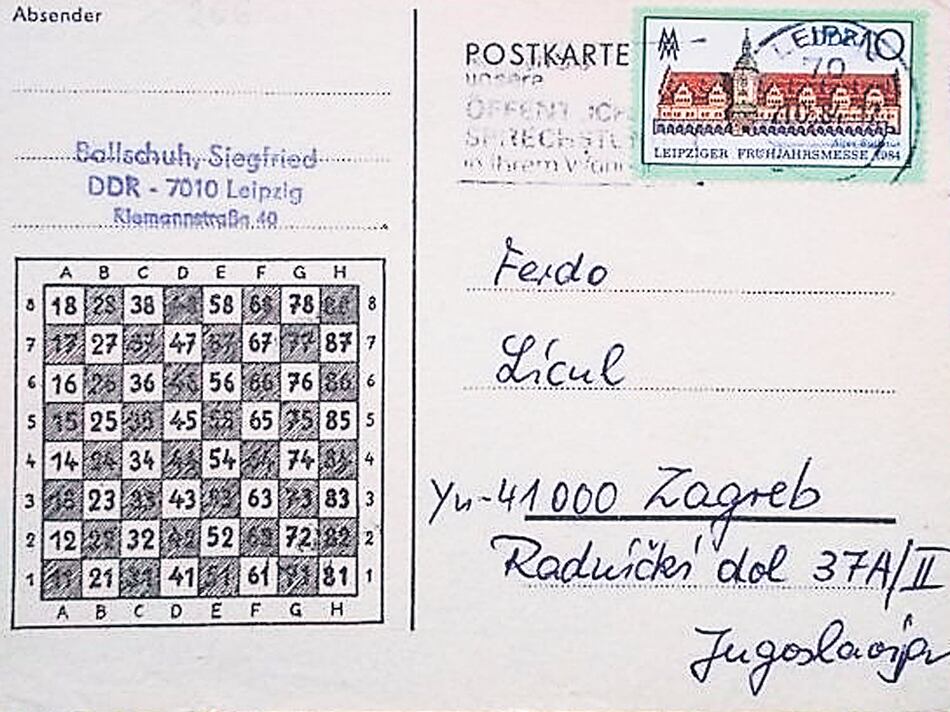 Absender
POSTKARTE
unsere
ÖFFENTLICHE
SPRECHSTU
in Ihrem Wohn
DDR 10
LEIPZIG
70
84
Altes Rathaus
LEIPZIGER FRÜHJAHRSMESSE 1984
Ballschuh, Siegfried
DDR - 7010 Leipzig
Riemannstraße 40
A B C D E F G H
8 18 28 38 48 58 68 78 88 8
7 17 27 37 47 57 67 77 87 7
6 16 26 36 46 56 66 76 86 6
5 15 25 35 45 55 65 75 85 5
4 14 24 34 44 54 64 74 84 4
3 13 23 33 43 53 63 73 83 3
2 12 22 32 42 52 62 72 82 2
1 11 21 31 41 51 61 71 81 1
A B C D E F G H
Ferdo
Lícul
Yu-41000 Zagreb
Radnički dol 37A/II
Jugoslavija